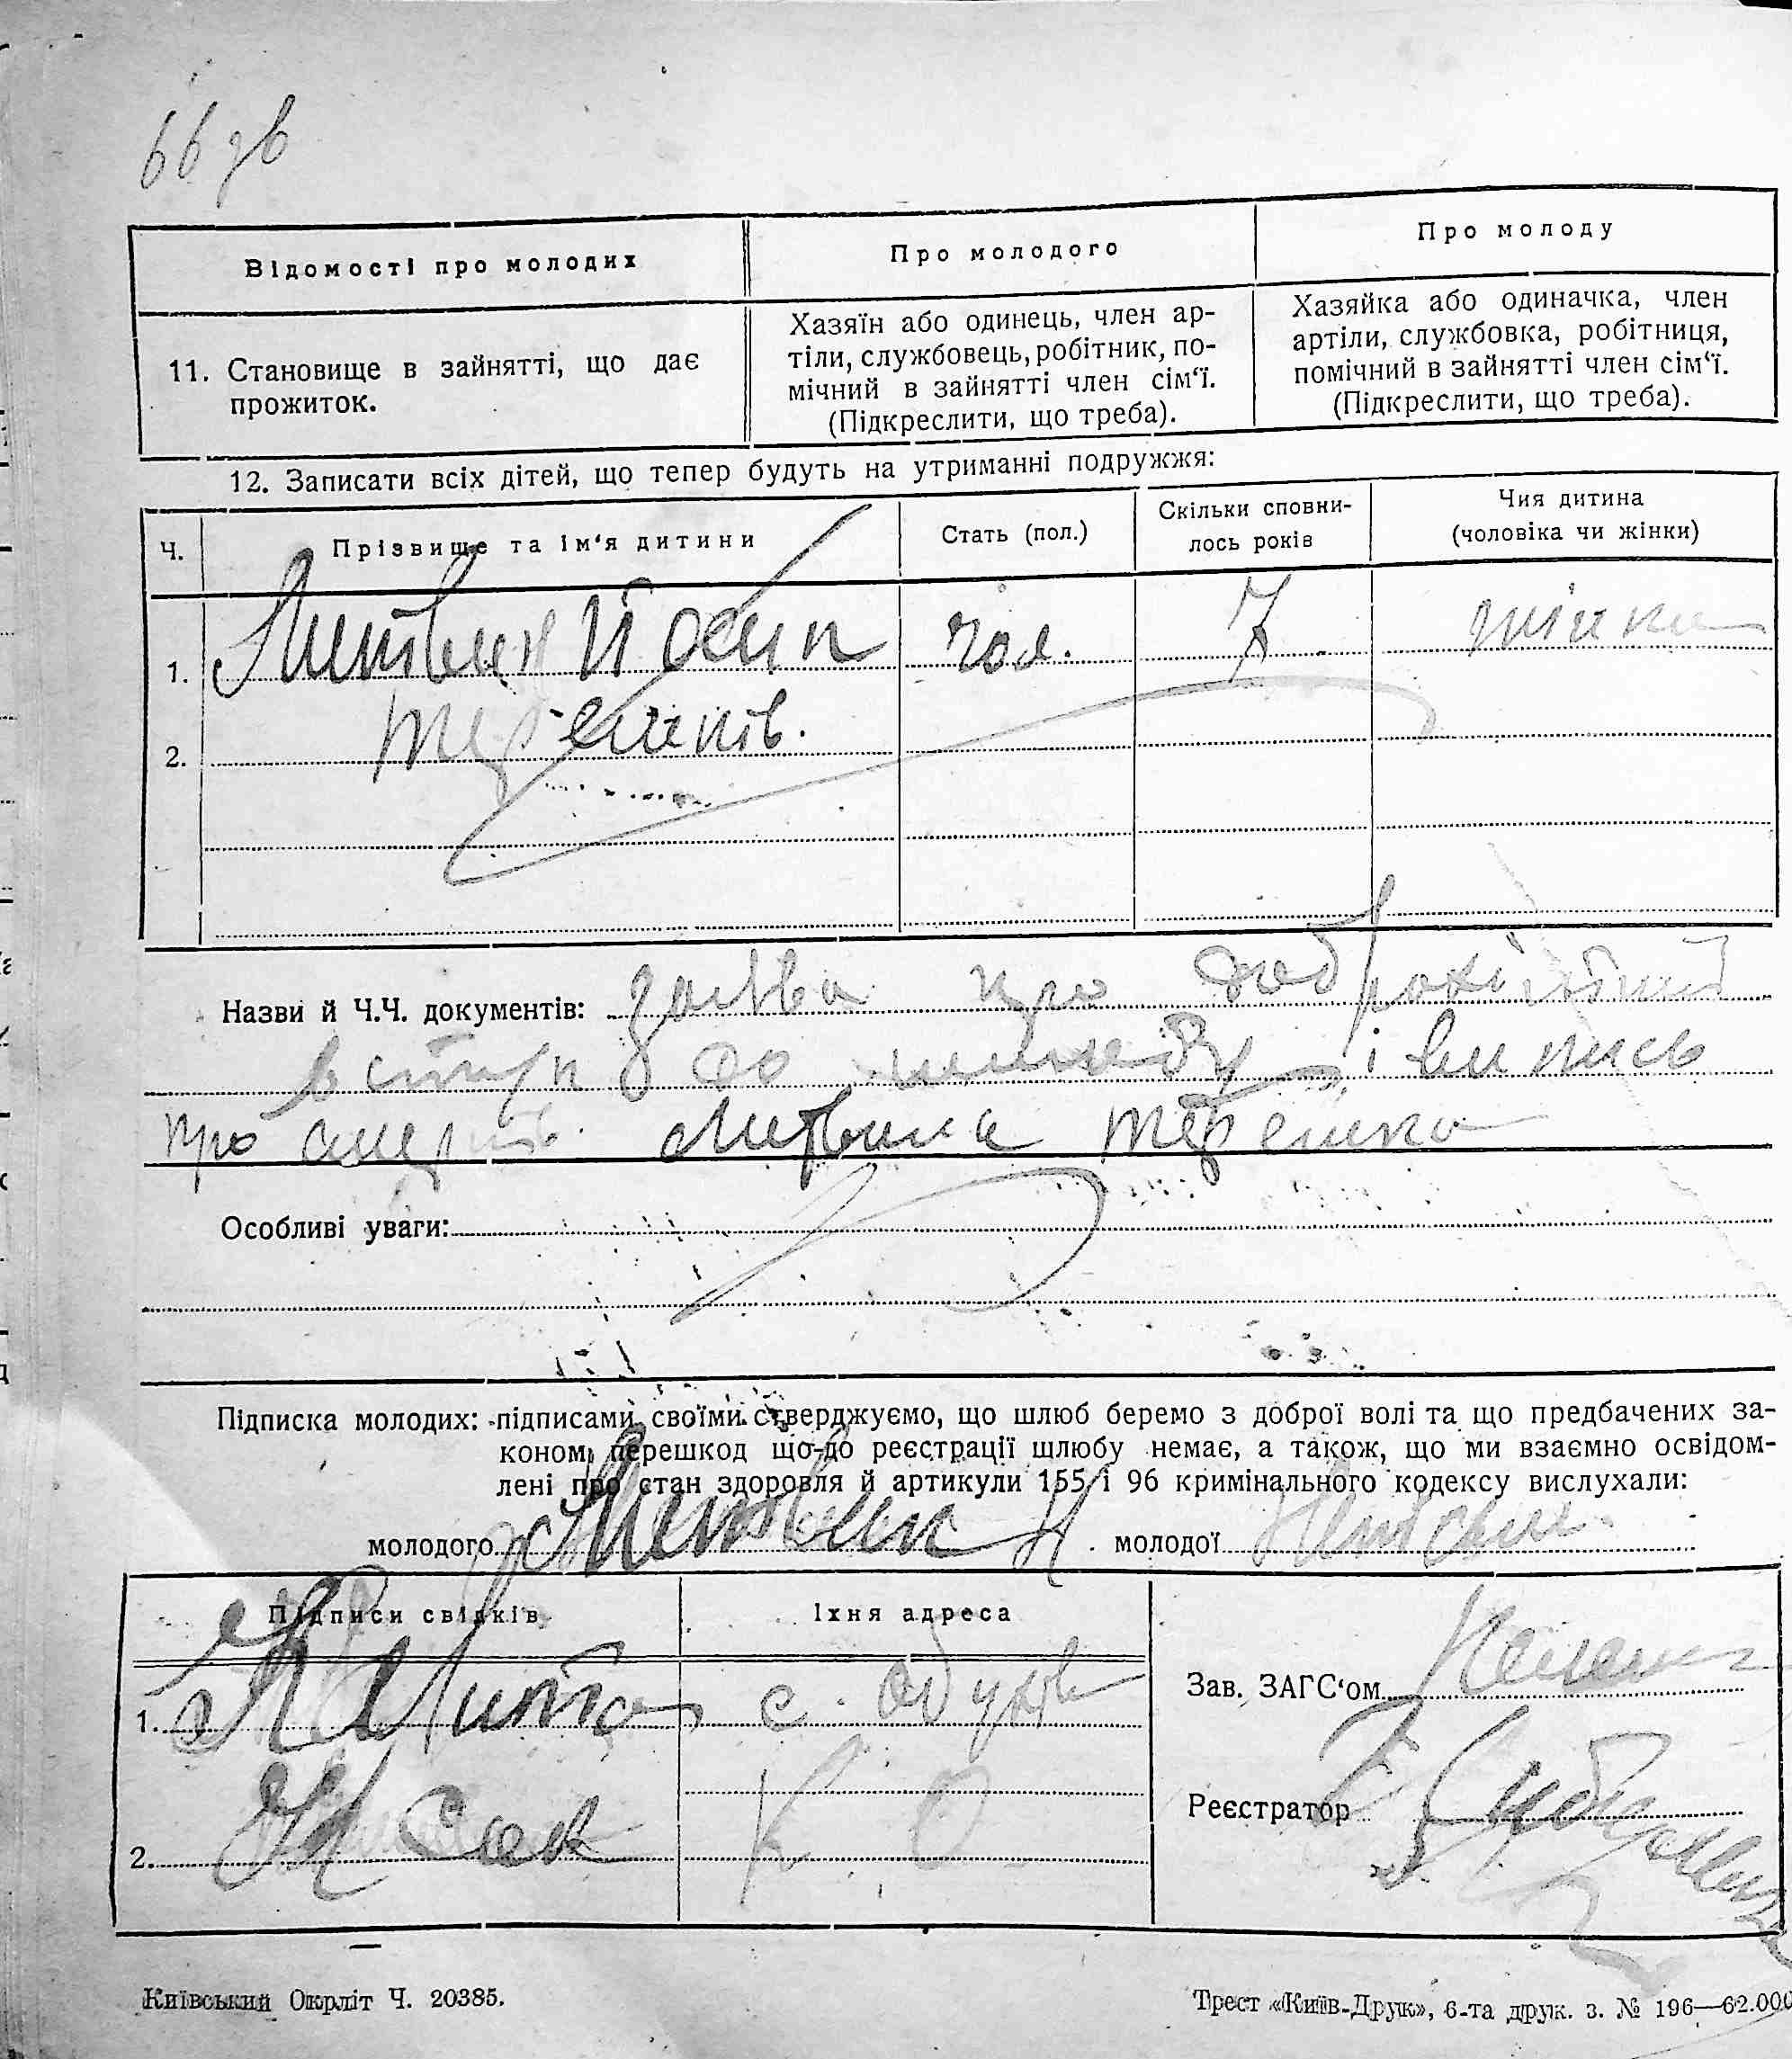 66 зв
Відомості про молодих
Про молодого
Про молоду
11. Становище в зайнятті, що дає
прожиток.
Хазяїн або одинець, член ар-
тіли, службовець, робітник, по-
мічний в зайнятті член сім‘ї.
(Підкреслити, що треба).
Хазяйка або одиначка, член
артіли, службовка, робітниця,
помічний в зайнятті член сім‘ї.
(Підкреслити, що треба).
12. Записати всіх дітей, що тепер будуть на утриманні подружжя:
Ч.
Прізвище та ім‘я дитини
Стать (пол.)
Скільки сповни-
лось років
Чия дитина
(чоловіка чи жінки)
1. Литвин Йосип чол. 7 жінки
2.
Назви й Ч.Ч. документів: заява про добровільний
вступ до шлюбу і випись
про смерть Литвина Терешка
Особливі уваги:
Підписка молодих: підписами своїми стверджуємо, що шлюб беремо з доброї волі та що предбачених за-
коном перешкод що-до реєстрації шлюбу немає, а також, що ми взаємно освідом-
лені про стан здоровля й артикули 155 і 96 кримінального кодексу вислухали:
молодого Литвин молодої Литвин
Підписи свідків
Їхня адреса
1. с.
2.
Зав. ЗАГС‘ом
Реєстратор
Київський Окрліт Ч. 20385.
Трест «Київ-Друк», 6-та друк. з. № 196—62.000